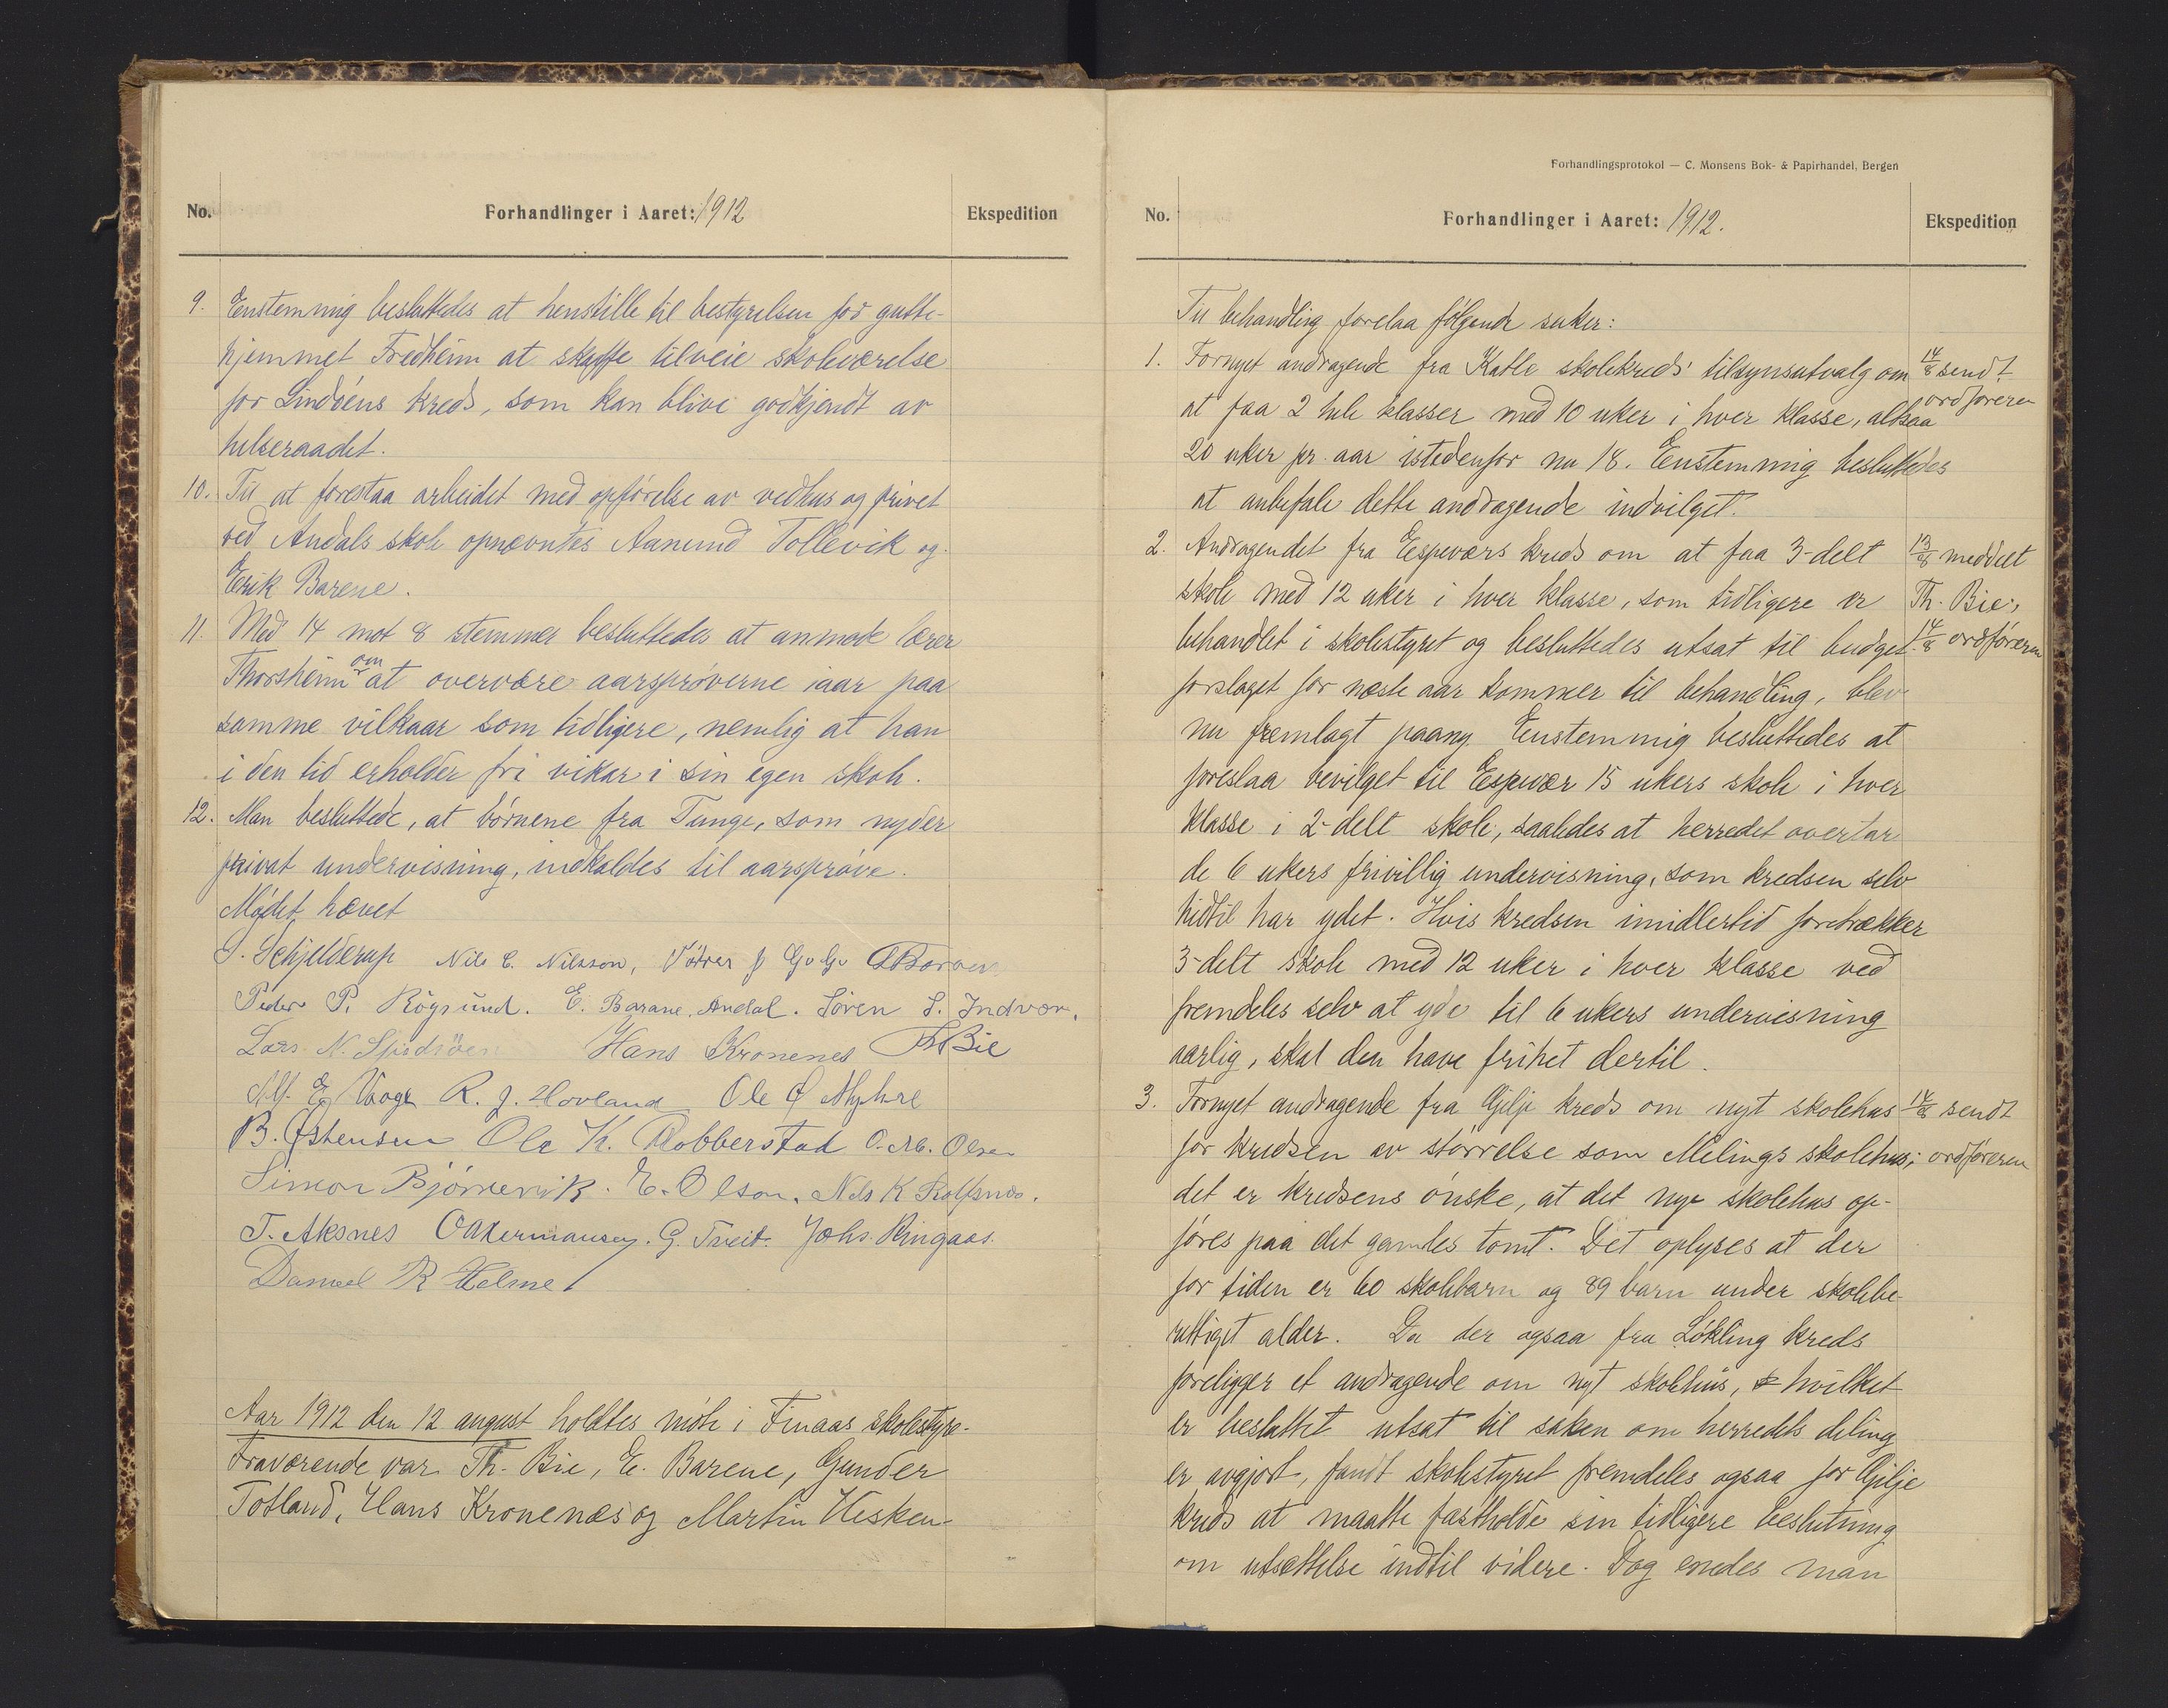 No.
Forhandlinger i Aaret: 1912
Ekspedition
9. Enstemmig besluttedes at henstille til bestyrelsen for gutte-
hjemmet Fredheim at skaffe tilveie skoleværelse
for Lindöens kreds, som kan blive godkjendt av
helseraadet.
10. Til at forestaa arbeidet med opförelse av vedhus og privet
ved Andals skole opnævntes Aamund Tollevik og
Erik Barene.
11. Med 14 mot 8 stemmer besluttedes at anmode lærer
Thorsheim om at overvære aarspröverne iaar paa
samme vilkaar som tidligere, nemlig at han
i den tid erholder fri vikar i sin egen skole.
12. Man besluttede, at börnene fra Tunge, som nyder
privat undervisning, indkaldes til aarspröve.
Mödet hævet
S. Schjelderup Nils C. Nilsson,
Peder P. Rögsund. E. Barane. Andal. Sören S. Indvær.
Lars N. Hans Kronenes Th Bie
E. Vage R. J. Hovland Ole Ø Myhre
B. Østensen Ole K. Robberstad O. M. Olsen
Simon Björnevik. E. Olson. Nils K Rolfsnes.
T. Aksnes O Akermansen. G. Tveit. Johs. Ringaas.
Daniel R Helme
Aar 1912 den 12 august holdtes möte i Finaas skolestyre.
Fraværende var Th. Bie, E. Barene, Gunder
Totland, Hans Kronenes og Martin Hisken-
Forhandlingsprotokol — C. Monsens Bok- & Papirhandel, Bergen
No.
Forhandlinger i Aaret: 1912.
Ekspedition
Til behandling forelaa fölgende saker:
1. Fornyet andragende fra Katle skolekreds' tilsynsutvalg om 14/8 sendt
at faa 2 hele klasser med 10 uker i hver klasse, altsaa ordföreren
20 uker pr. aar istedenfor nu 18. Enstemmig besluttedes
at anbefale dette andragende indvilget.
2. Andragendet fra Espeværs kreds om at faa 3-delt 13/8 meddelt
skole med 12 uker i hver klasse, som tidligere er Th. Bie,
behandlet i skolestyret og besluttedes utsat til budget- 14/8 ordföreren
forslaget for næste aar kommer til behandling, blev
nu fremlagt paany. Enstemmig besluttedes at
foreslaa bevilget til Espevær 15 ukers skole i hver
klasse i 2-delt skole, saaledes at herredet overtar
de 6 ukers frivillig undervisning, som kredsen selv
hidtil har ydet. Hvis kredsen imidlertid foretrækker
3-delt skole med 12 uker i hver klasse ved
fremdeles selv at yde til 6 ukers undervisning
aarlig, skal den have frihet dertil.
3. Fornyet andragende fra Gilje kreds om nyt skolehus 14/8 sendt
for kredsen av störrelse som Melings skolehus; ordföreren
det er kredsens önske, at det nye skolehus op-
föres paa det gamles tomt. Det oplyses at der
for tiden er 60 skolebarn og 89 barn under skolebe-
rettiget alder. Da der ogsaa fra Lökling kreds
foreligger et andragende om nyt skolehus, hvilket
er besluttet utsat til saken om herredets deling
er avgjort, fandt skolestyret fremdeles ogsaa for Gilje
kreds at maatte fastholde sin tidligere beslutning
om utsættelse indtil videre. Dog enedes man